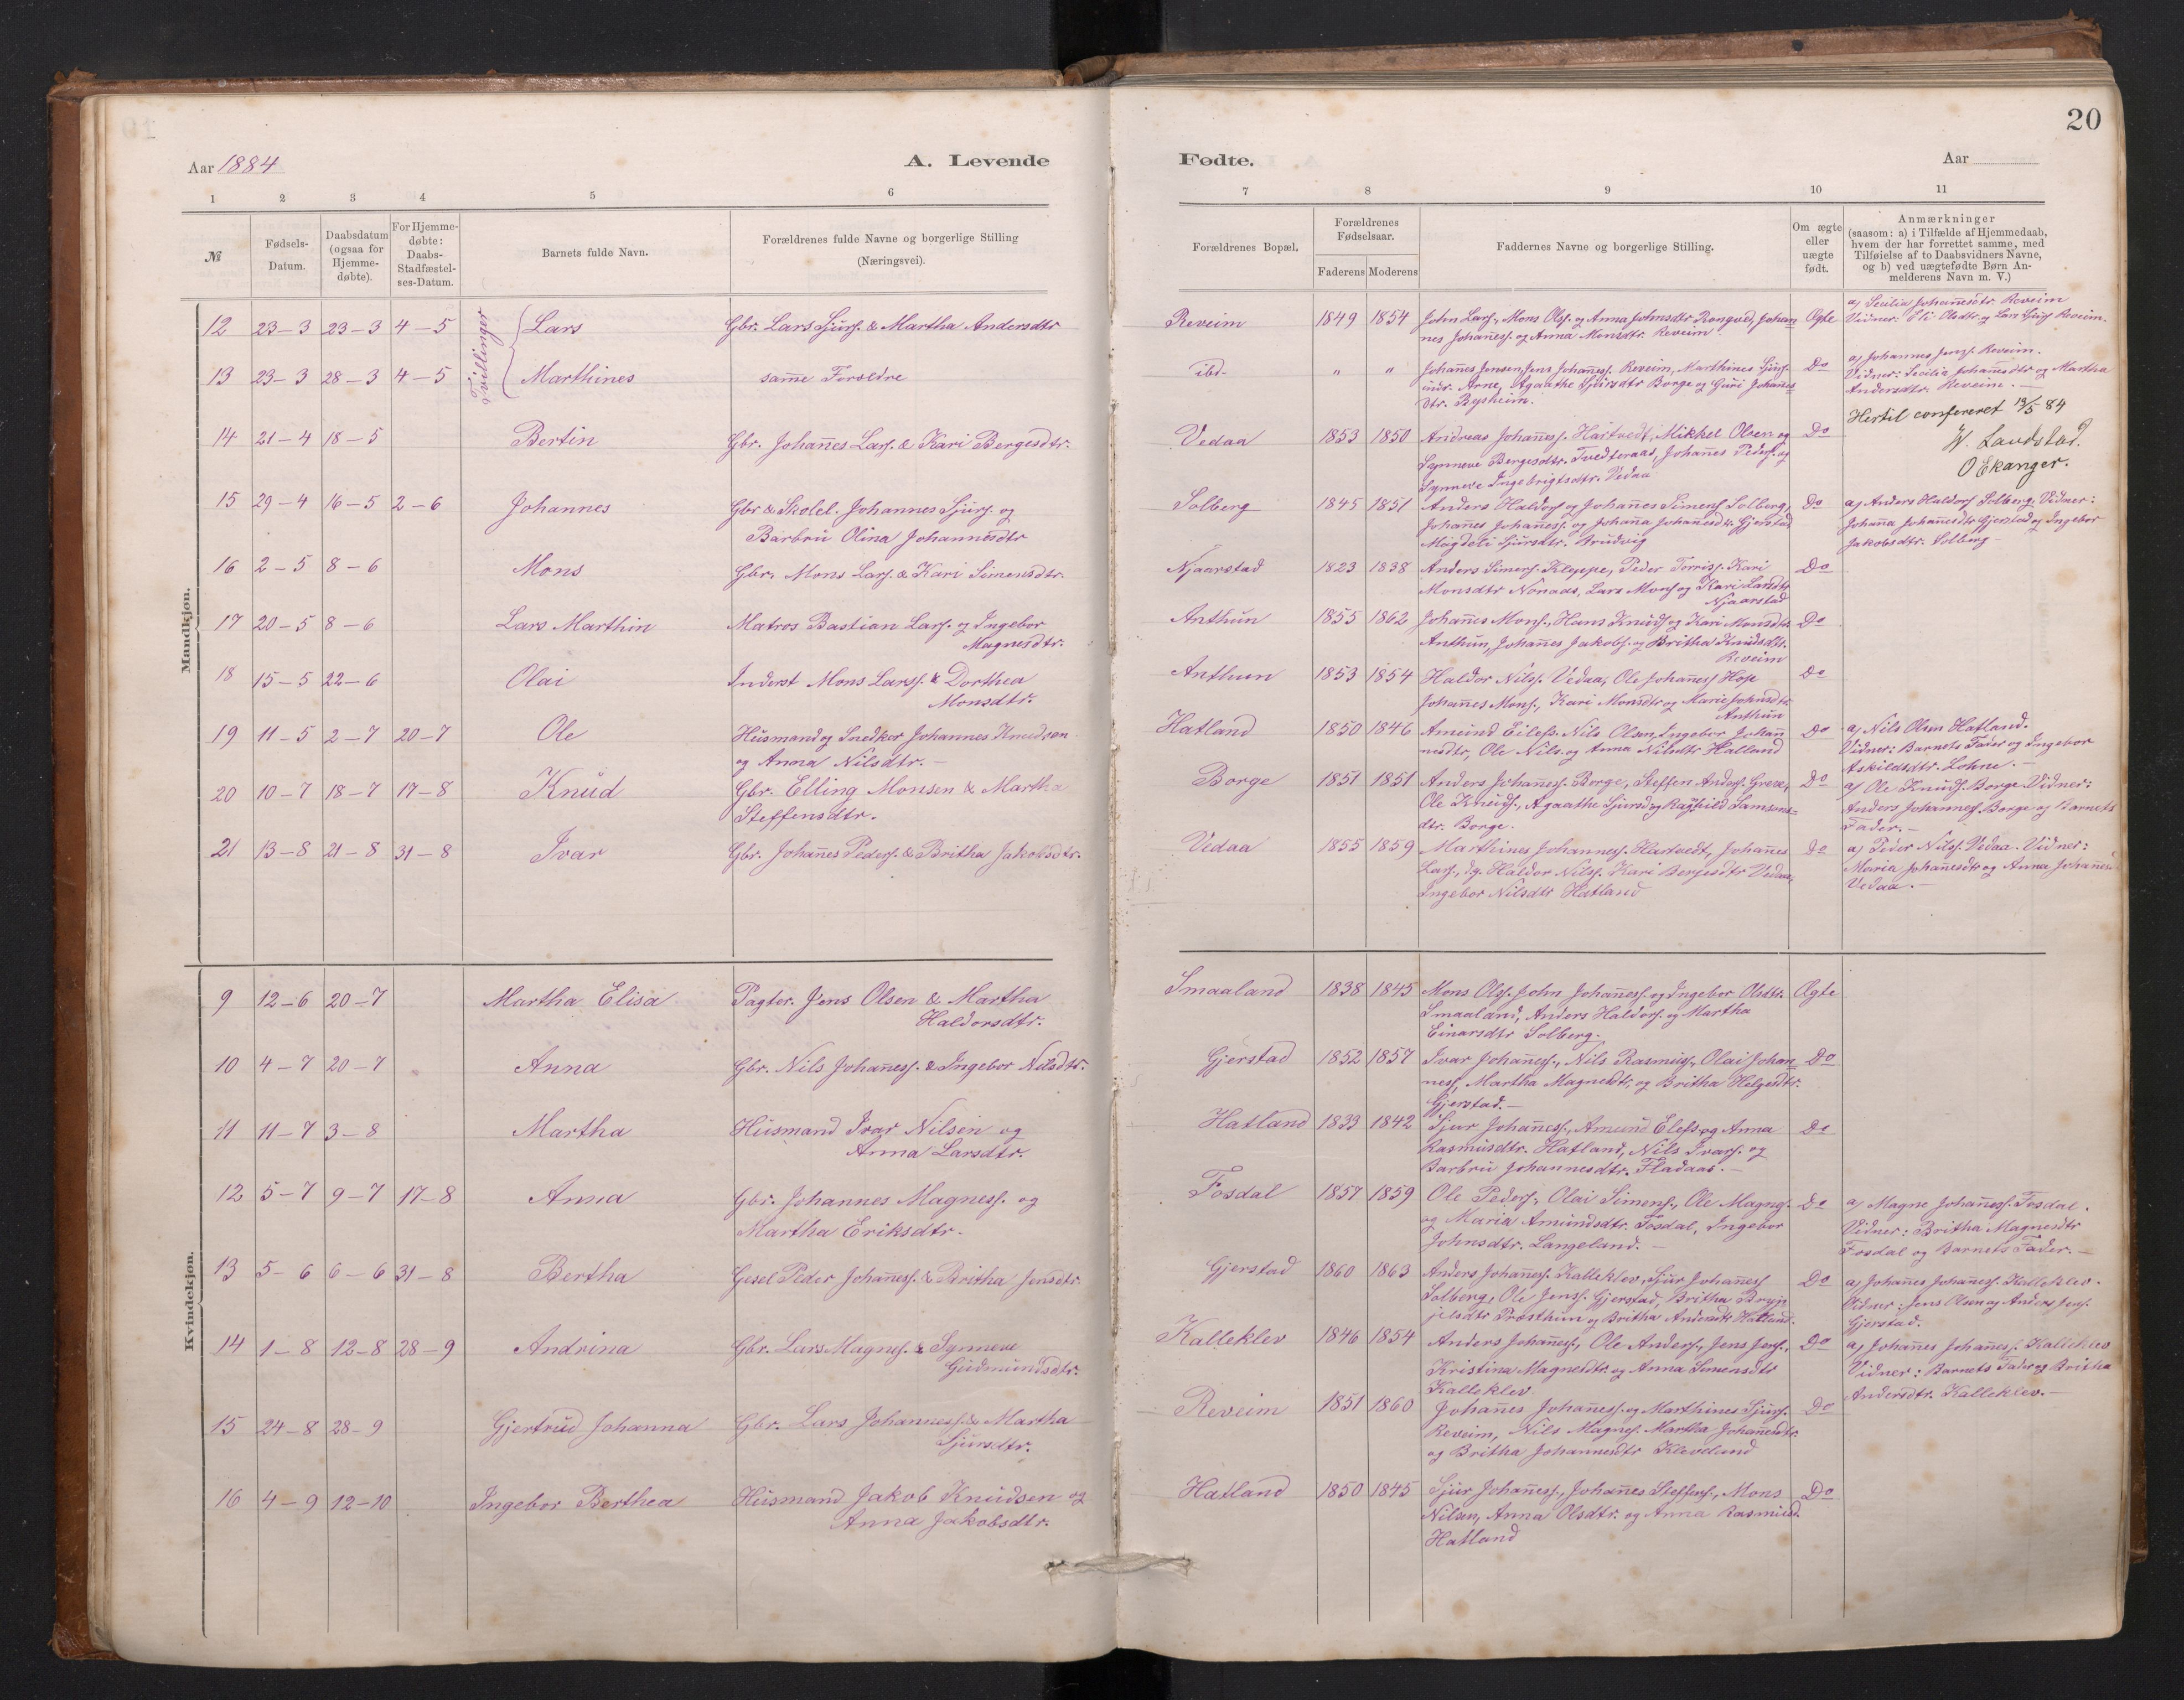 20
Aar 1884 A. Levende Fødte. Aar
1 2 3 4 5 6 7 8 9 10 11
№
Fødsels-Datum.
Daabsdatum (ogsaa for Hjemme-døbte).
For Hjemme-døbte: Daabs-Stadfæstel-ses-Datum.
Barnets fulde Navn.
Forældrenes fulde Navne og borgerlige Stilling (Næringsvei).
Forældrenes Bopæl.
Forældrenes Fødselsaar.
Faderens Moderens
Faddernes Navne og borgerlige Stilling.
Om ægte eller uægte født.
Anmærkninger (saasom: a) i Tilfælde af Hjemmedaab, hvem der har forrettet samme, med Tilføielse af to Daabsvidners Navne, og b) ved uægtefødte Børn An-melderens Navn m. V.)
Mandkjøn.
Tvillinger
12 23-3 23-3 4-5 Lars Gbr. Lars Sjurs. & Martha Andersdtr Reveim 1849 1854 John Lars., Mons Ols. og Anna Johnsdtr Rongved, Johan Ægte a) Secilia Johañesdtr. Reveim
nes Johañess. og Anna Monsdtr. Reveim Vidner: Eli Olsdtr og Lars Sjurs Reveim.
13 23-3 28-3 4-5 Marthines samme Forældre ibd. " " Johañes Jensen, Jens Johañess. Reveim, Marthines Sjurs. Do a) Johannes Jens. Reveim.
Arne, Agaathe Sjursdtr Borge og Guri Johañes Vidner: Secilia Johañesdtr og Martha
dtr. Rysheim. Andersdtr. Reveim. -
Hertil confereret 19/5 84
W. Landstad.
O Ekanger.
14 21-4 18-5 Bertin Gbr. Johañes Lars. & Kari Bergesdtr. Vedaa 1853 1850 Andreas Johañess. Hartvedt, Mikkel Olsen og Do
Synneve Bergesdtr. Tvedteraas, Johañes Peders. og
Synneve Ingebrigtsdtr. Vedaa
15 29-4 16-5 2-6 Johannes Gbr & Skolel. Johannes Sjurs. og Solberg 1845 1851 Anders Haldors og Johañes Simens Solberg, Do a) Anders Haldors Solberg Vidner:
Barbru Olina Johannesdtr Johañes Johañess. og Johaña Johañesdtr. Gjerstad Johaña Johañesdtr Gjerstad og Ingebor
Magdeli Sjursdtr. Brudvig Jakobsdtr. Solberg -
16 2-5 8-6 Mons Gbr. Mons Lars. & Kari Simensdtr. Njaarstad 1823 1838 Anders Simens. Kleppe, Peder Torriss. Kari Do
Monsdtr Nonaas, Lars Mons og Kari Larsdtr
Njaarstad
17 20-5 8-6 Lars Marthin Matros Bastian Lars. og Ingebor Anthun 1855 1862 Johañes Mons., Hans Knuds og Kari Monsdtr. Do
Magnesdtr. Anthun, Johañes Jakobs. og Britha Knudsdtr.
Reveim
18 15-5 22-6 Olai Inderst Mons Lars. & Dorthea Anthun 1853 1854 Haldor Nils. Vedaa, Ole Johañess Hope Do
Monsdtr. Johañes Mons., Kari Monsdtr og Marie Johnsdtr.
Anthun
19 11-5 2-7 20-7 Ole Husmand og Snedker Johannes Knudsen Hatland 1850 1846 Amund Eilefs. Nils Olsen, Ingebor Johañ Do a) Nils Olsen Hatland.
og Anna Nilsdtr. - nesdtr, Ole Nils. og Anna Nilsdtr Hatland Vidner: Barnets Fader og Ingebor
Askildsdtr. Lohne. -
20 10-7 18-7 17-8 Knud Gbr. Elling Monsen & Martha Borge 1851 1851 Anders Johañess. Borge, Steffen Anders. Greve, Do a) Ole Knuds. Borge Vidner:
Steffensdtr. Ole Knuds., Agaathe Sjursd og Raghild Samsons- Anders Johannes Borge og Barnets
dtr. Borge. Fader. -
21 13-8 21-8 31-8 Ivar Gbr. Johañes Peders. & Britha Jakobsdtr. Vedaa 1855 1859 Marthines Johannes. Hartvedt, Johañes do a) Peder Nils. Vedaa. Vidner:
Lars., Haldor Nils. Kari Bergesdtr Vedaa, Maria Johañesdtr og Anna Johañesd
Ingebor Nilsdtr Hatland Vedaa. -
Kvindekjøn.
9 12-6 20-7 Martha Elisa Pagter. Jens Olsen & Martha Smaaland 1838 1845 Mons Ols. John Johañess. og Ingebor Olsdtr. Ægte
Haldorsdtr. Smaaland, Anders Haldors. og Martha
Einarsdtr Solberg.
10 4-7 20-7 Anna Gbr. Nils Johañess. & Ingebor Nilsdtr. Gjerstad 1852 1857 Ivar Johañess., Nils Rasmus., Olai Johan Do
ness, Martha Magnesdtr, og Britha Helgesdtr.
Gjerstad. -
11 11-7 3-8 Martha Husmand Ivar Nilsen og Hatland 1839 1842 Sjur Johañess., Amund Elefs og Anna Do
Anna Larsdtr. Rasmusdtr. Hatland, Nils Ivars. og
Barbru Johannesdtr. Fladaas. -
12 5-7 9-7 17-8 Anna Gbr. Johannes Magness. og Fosdal 1857 1859 Ole Peders., Olai Simens., Ole Magnes. Do a) Magne Johañess. Fosdal.
Martha Eriksdtr. og Maria Amundsdtr. Fosdal, Ingebor Vidner: Britha Magnesdtr
Johnsdtr. Langeland. - Fosdal og Barnets Fader. -
13 5-6 6-6 31-8 Bertha Gesel Peder Johañess. & Britha Jensdtr Gjerstad 1860 1863 Anders Johañess. Kalleklev, Sjur Johañess Do a) Johañes Johañess. Kalleklev.
Solberg, Ole Jens. Gjerstad, Britha Bryn Vidner: Jens Olsen og Anders Jens.
jelsdtr Præsthun og Britha Andersdtr Hatland. Gjerstad.
14 1-8 12-8 28-9 Andrina Gbr. Lars Magnes. & Synneve Kalleklev 1846 1854 Anders Johañess., Ole Anders., Jens Jens., Do a) Johañes Johañess. Kalleklev
Gudmundsdtr. Kristina Magnesdtr. og Anna Simensdtr Vidner: Barnets Fader og Britha
Kalleklev Andersdtr. Kalleklev. -
15 24-8 28-9 Gjertrud Johanna Gbr. Lars Johanness. & Martha Reveim 1851 1860 Johañes Johañess. og Marthines Sjurs. Do
Sjursdtr. Reveim, Nils Magnes. Martha Johañesdtr.
og Britha Johannesdtr Kleveland
16 4-9 12-10 Ingebor Berthea Husmand Jakob Knudsen og Hatland 1850 1845 Sjur Johañess., Johañes Steffens., Mons Do
Anna Jakobsdtr. Nilsen, Anna Olsdtr. og Anna Rasmusd.
Hatland